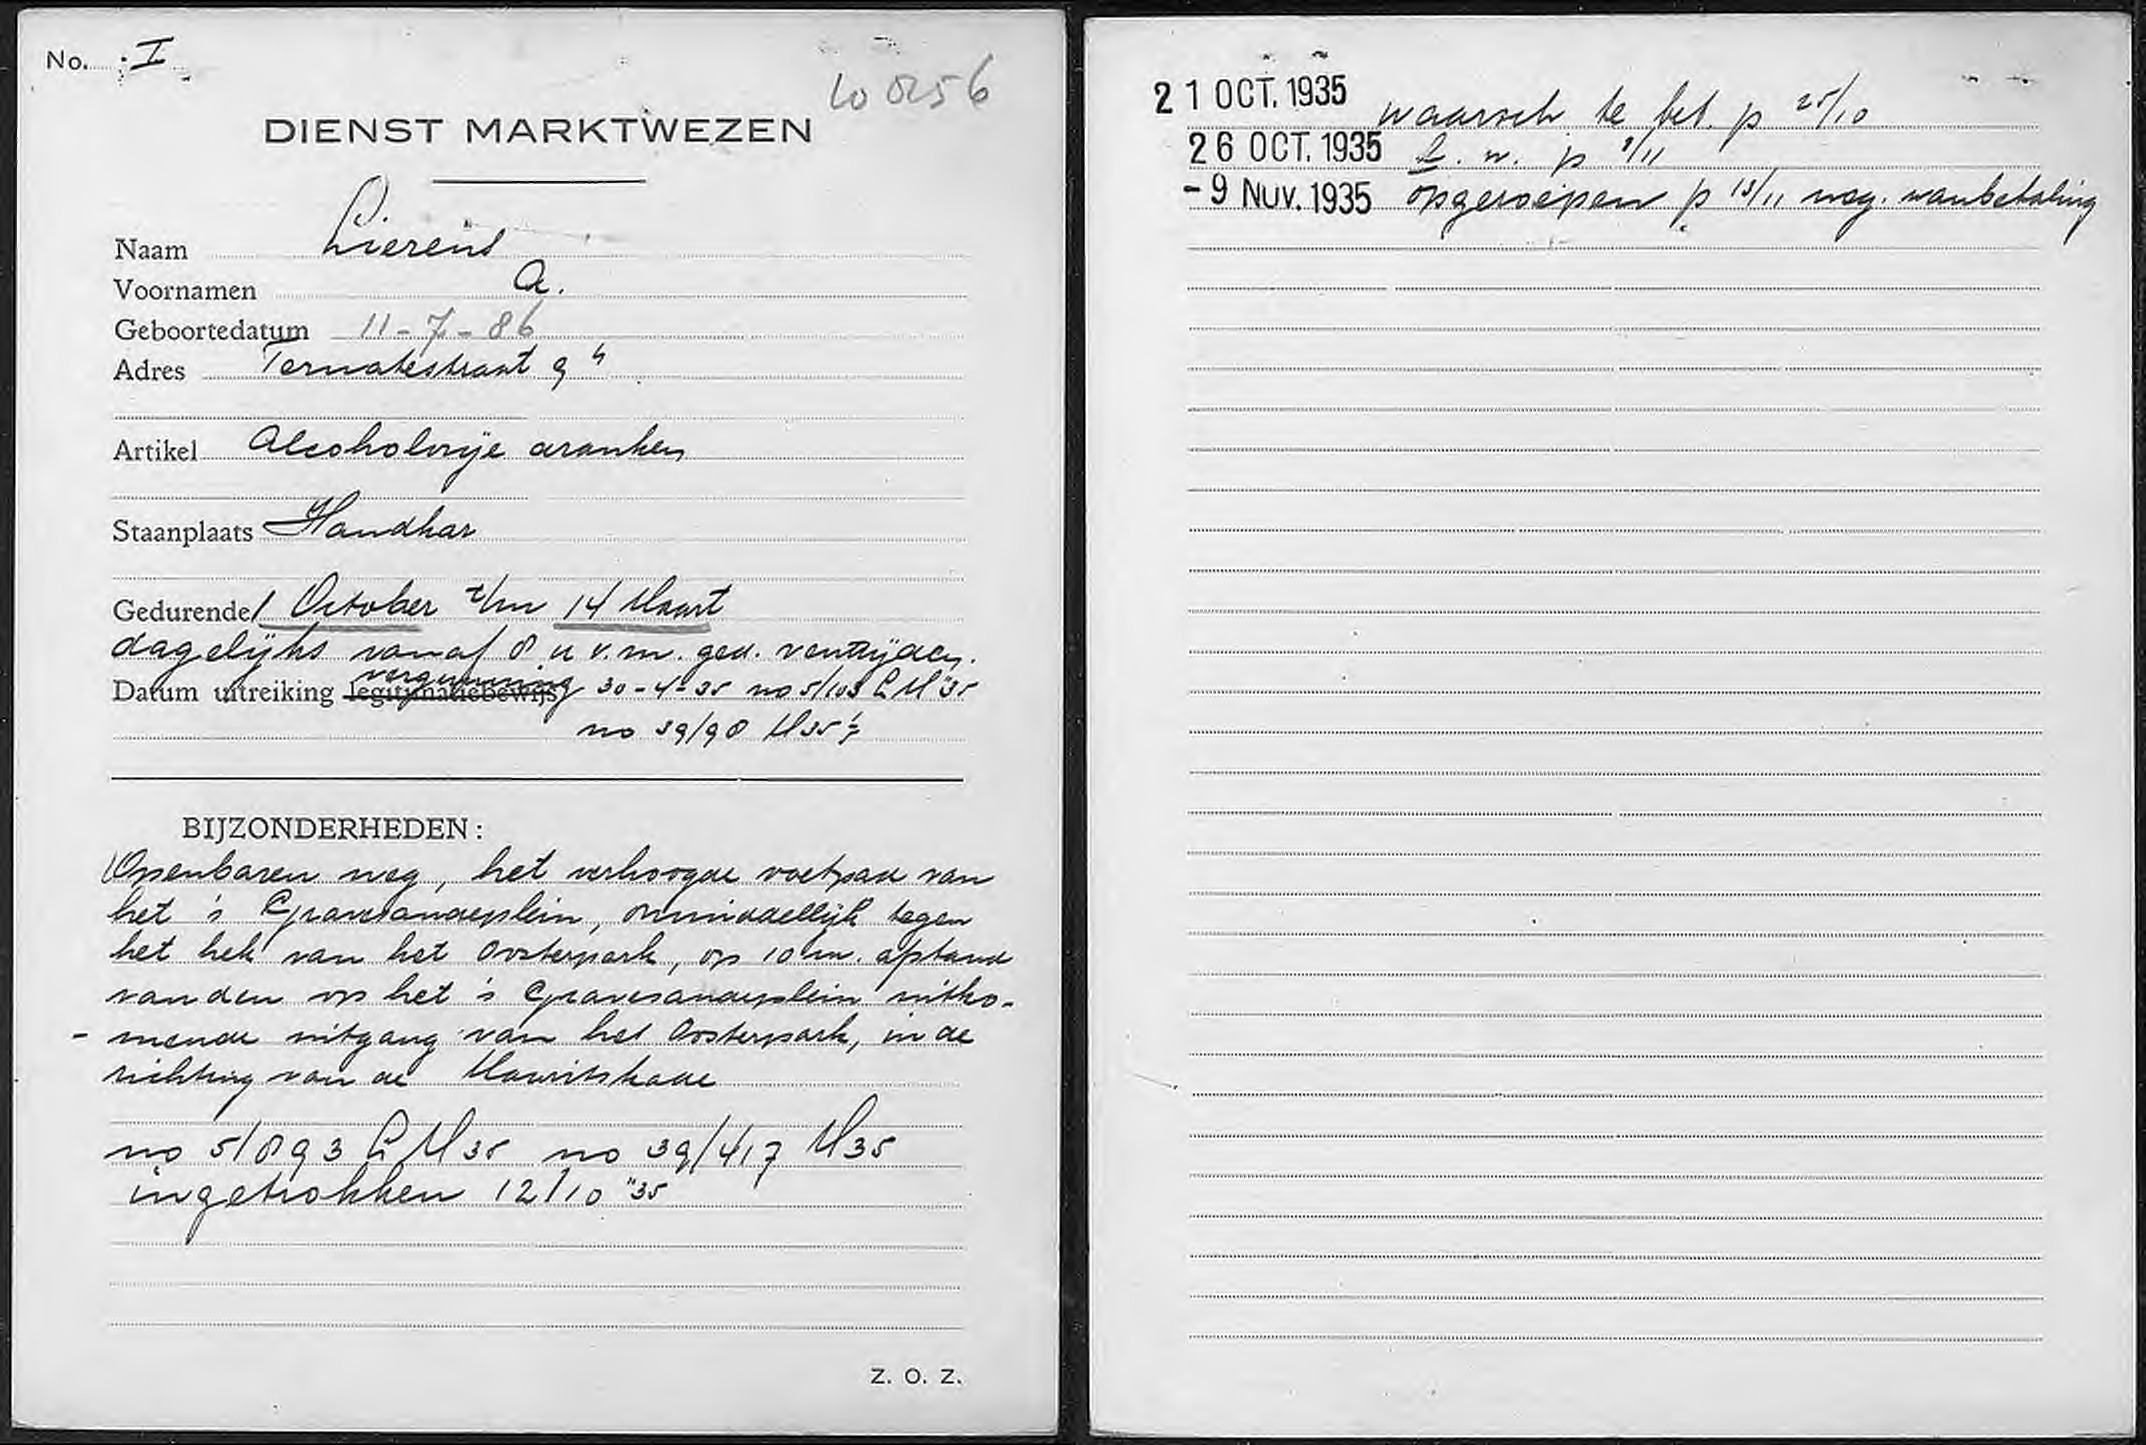 No. I
DIENST MARKTWEZEN
Naam Lierens
Voornamen A.
Geboortedatum 11-7-86
Adres Ternatestraat 9 h
Artikel Alcoholvrije dranken
Staanplaats Handkar
Gedurende 1 October t/m 14 Maart
dagelijks vanaf 8 u v.m. ged. venttijden.
Datum uitreiking legitimatiebewijs vergunning 30-4-35 no 5/103 L M '35
no 39/98 M 35
BIJZONDERHEDEN:
Openbaren weg, het verhoogde voetpad van
het 's Gravesandeplein, onmiddellijk tegen
het hek van het Oosterpark, op 10 m. afstand
van den op het 's Gravesandeplein uitko-
mende uitgang van het Oosterpark, in de
richting van de Mauritskade
no 5/893 L M 35 no 39/417 M 35
ingetrokken 12/10 "35
Z. O. Z.
21 OCT. 1935 waarsch te bet. p 25/10
26 OCT. 1935 L. w. p 1/11
-9 NOV. 1935 opgeroepen p 13/11 weg. wanbetaling